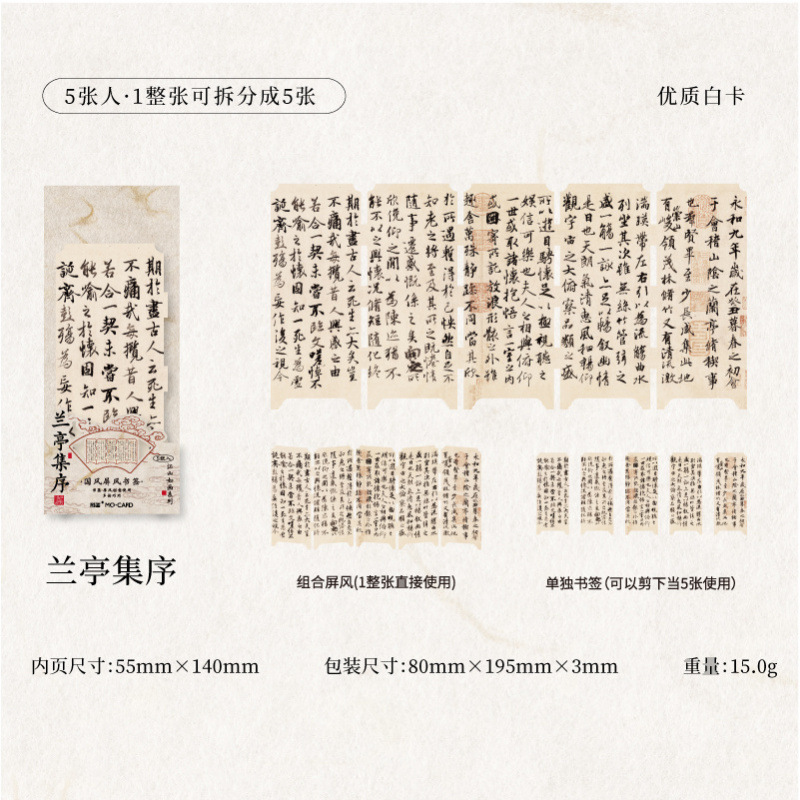 5张入·1整张可拆分成5张
优质白卡
期於盡古人云死生亦
不痛哉每攬昔人興
若合一契未嘗不臨
能喻之於懷固知一
誕齊彭殤為妄作
兰亭集序
5张入
江山如画系列
·国风屏风书签·
MO·CARD
永和九年歲在癸丑暮春之初會
于會稽山陰之蘭亭脩稧事
也群賢畢至少長咸集此地
有崇山峻領茂林脩竹又有清流激
湍暎帶左右引以為流觴曲水
列坐其次雖無絲竹管弦之
盛一觴一詠亦足以暢敘幽情
是日也天朗氣清惠風和暢仰
觀宇宙之大俯察品類之盛
所以遊目騁懷足以極視聽之
娛信可樂也夫人之相與俯仰
一世或取諸懷抱悟言一室之內
或因寄所託放浪形骸之外雖
趣舍萬殊靜躁不同當其欣
於所遇蹔得於己怏然自足不
知老之將至及其所之既惓情
隨事遷感慨係之矣向之所
欣俛仰之閒以為陳迹猶不
能不以之興懷況脩短隨化終
期於盡古人云死生亦大矣豈
不痛哉每攬昔人興感之由
若合一契未嘗不臨文嗟悼不
能喻之於懷固知一死生為虛
誕齊彭殤為妄作後之視今
兰亭集序
组合屏风(1整张直接使用)
单独书签(可以剪下当5张使用)
内页尺寸:55mm×140mm
包装尺寸:80mm×195mm×3mm
重量:15.0g